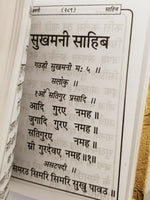 (१०१) साहिब
सुखमनी साहिब
गउड़ी सुखमनी म: ५ ॥
सलोकु ॥
१ओं सतिगुर प्रसादि ॥
आदि गुरए नमह ॥
जुगादि गुरए नमह ॥
सतिगुरए नमह ॥
स्री गुरदेवए नमह ॥१॥
असटपदी ॥
सिमरउ सिमरि सिमरि सुखु पावउ ॥